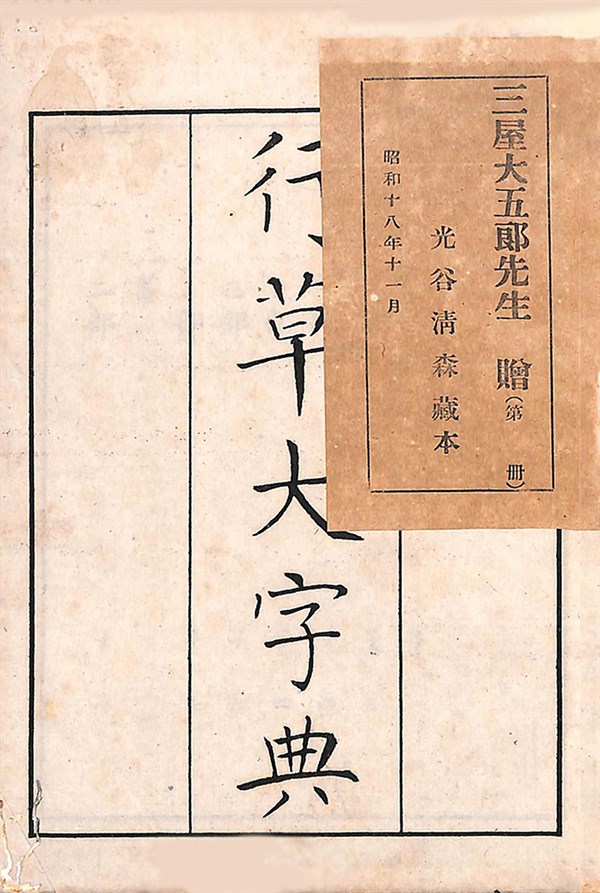 三屋大五郎先生 贈(第 冊)
光谷清森藏本
昭和十八年十一月
行草大字典